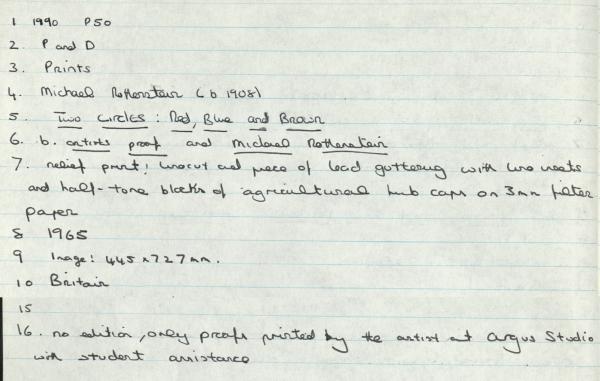 1 1990 P50
2. P and D
3. Prints
4. Michael Rothenstein (b 1908)
5 Two Circles : Red, Blue and Brown
6. b. artists proof and Michael Rothenstein
7. relief print; linocut and piece of lead guttering with lino insets
and half-tone blocks of agricultural hub caps on 3mm filter
paper
8 1965
9 Image: 445 x 727 mm.
10 Britain
15
16. no edition, only proofs printed by the artist at Argus Studio
with student assistance